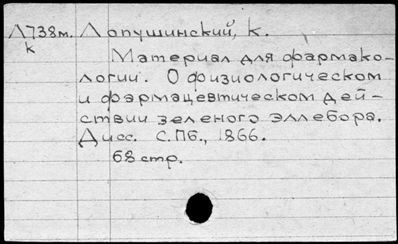 Л738м. Лопушинский, К.
к Материал для фармако-
логии. О физиологическом
и фармацевтическом дей-
ствии зеленого эллебора.
Дисс. С.Пб., 1866.
68 стр.